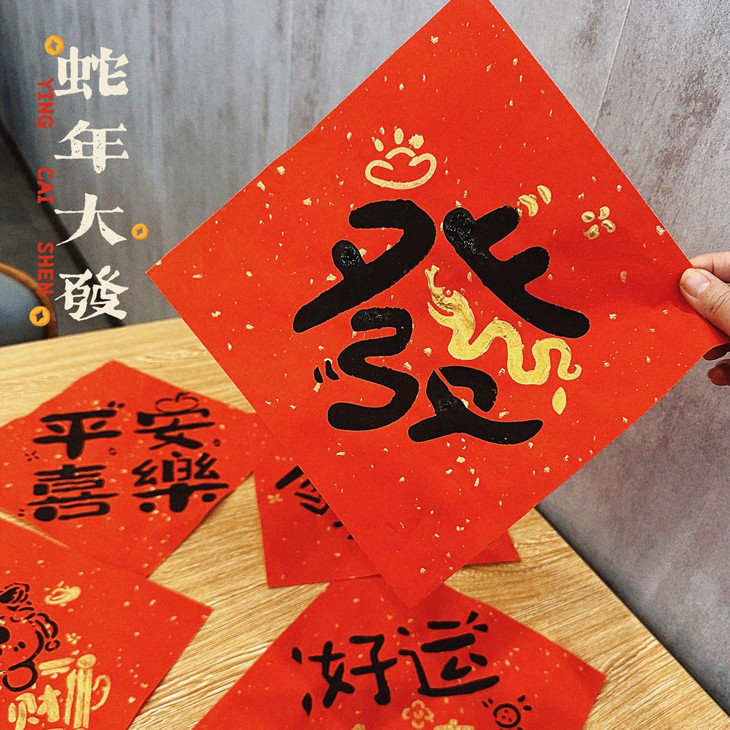 蛇年大發
YING CAI SHEN
發
平安
喜樂
好運
財